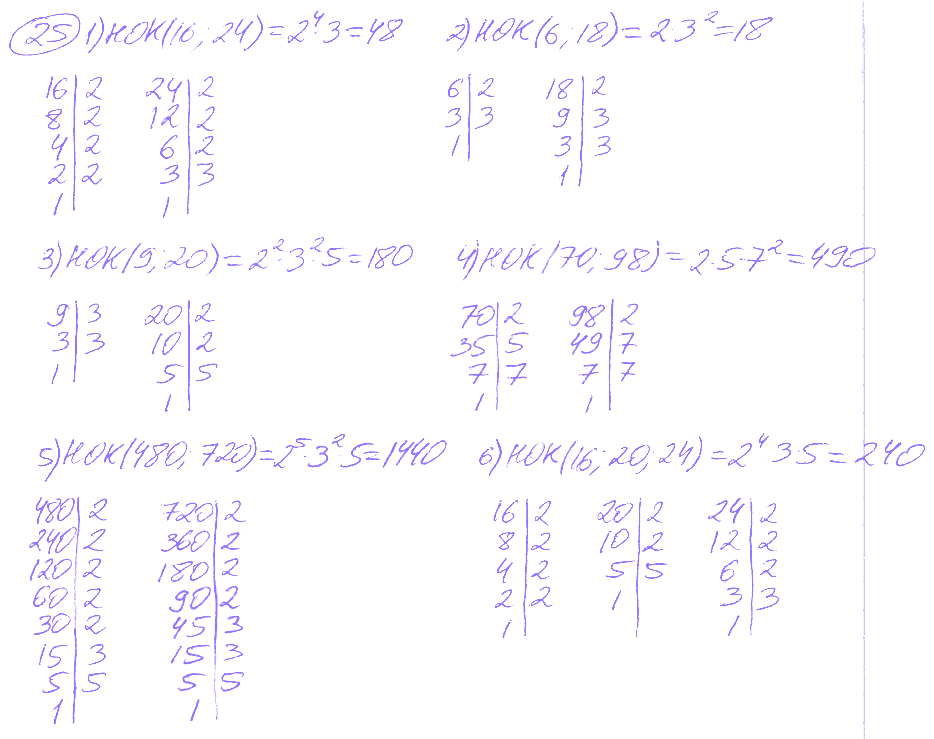 25 1) НОК(16; 24) = 2⁴·3 = 48
16 | 2 24 | 2
8 | 2 12 | 2
4 | 2 6 | 2
2 | 2 3 | 3
1 | 1 |
2) НОК(6; 18) = 2·3² = 18
6 | 2 18 | 2
3 | 3 9 | 3
1 | 3 | 3
1 |
3) НОК(9; 20) = 2²·3²·5 = 180
9 | 3 20 | 2
3 | 3 10 | 2
1 | 5 | 5
1 |
4) НОК(70; 98) = 2·5·7² = 490
70 | 2 98 | 2
35 | 5 49 | 7
7 | 7 7 | 7
1 | 1 |
5) НОК(480; 720) = 2⁵·3²·5 = 1440
480 | 2 720 | 2
240 | 2 360 | 2
120 | 2 180 | 2
60 | 2 90 | 2
30 | 2 45 | 3
15 | 3 15 | 3
5 | 5 5 | 5
1 | 1 |
6) НОК(16; 20; 24) = 2⁴ 3·5 = 240
16 | 2 20 | 2 24 | 2
8 | 2 10 | 2 12 | 2
4 | 2 5 | 5 6 | 2
2 | 2 1 | 3 | 3
1 | 1 |